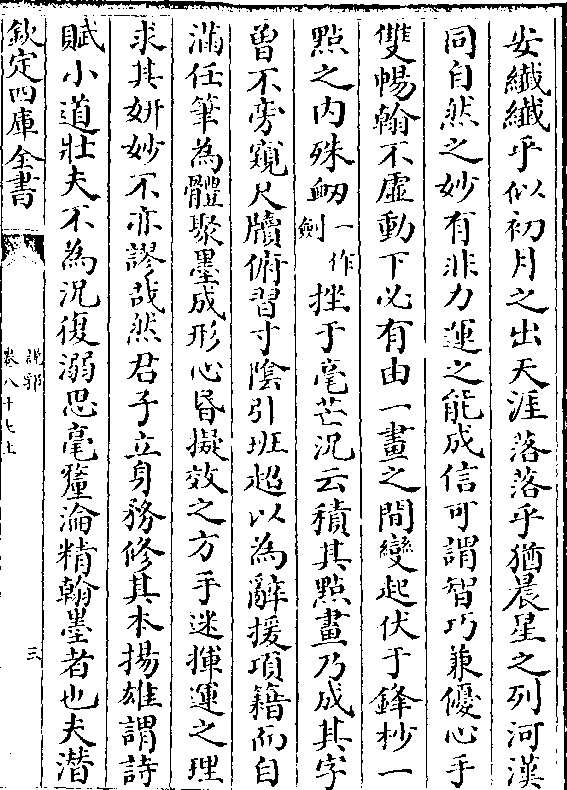 安纖纖乎似初月之出天涯落落乎猶晨星之列河漢
同自然之妙有非力運之能成信可謂智巧兼優心手
雙暢翰不虛動下必有由一畫之間變起伏于鋒杪一
點之内殊衂一作劍挫于毫芒况云積其點畫乃成其字
曽不旁窺尺牘俯習寸陰引班超以為辭援項籍而自
滿任筆為體聚墨成形心昬擬效之方手迷揮運之理
求其妍妙不亦謬哉然君子立身務修其本揚雄謂詩
賦小道壯夫不為况復溺思毫釐淪精翰墨者也夫潛
欽定四庫全書
説郛
卷八十七上
三